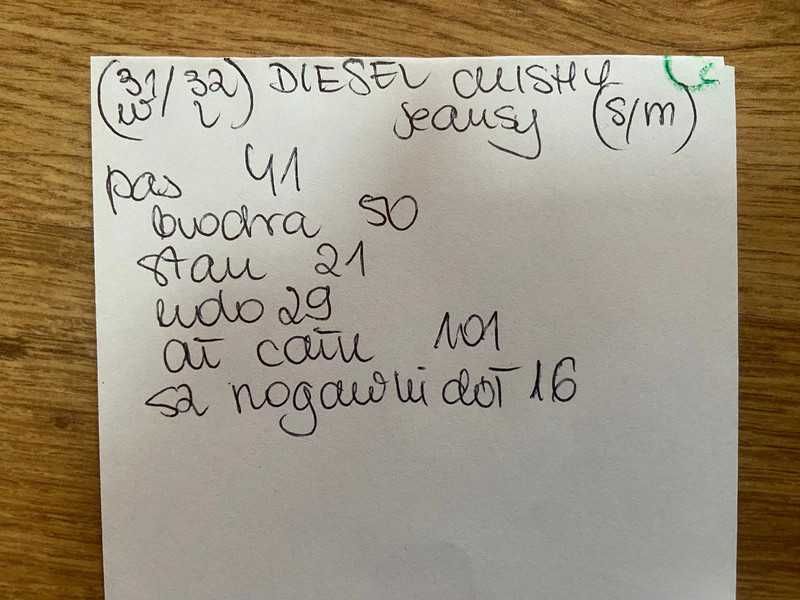 (31/32) DIESEL CLUSHY
W L jeansy (S/M)
pas 41
biodra 50
stan 21
udo 29
dł całk 101
sz nogawki dół 16